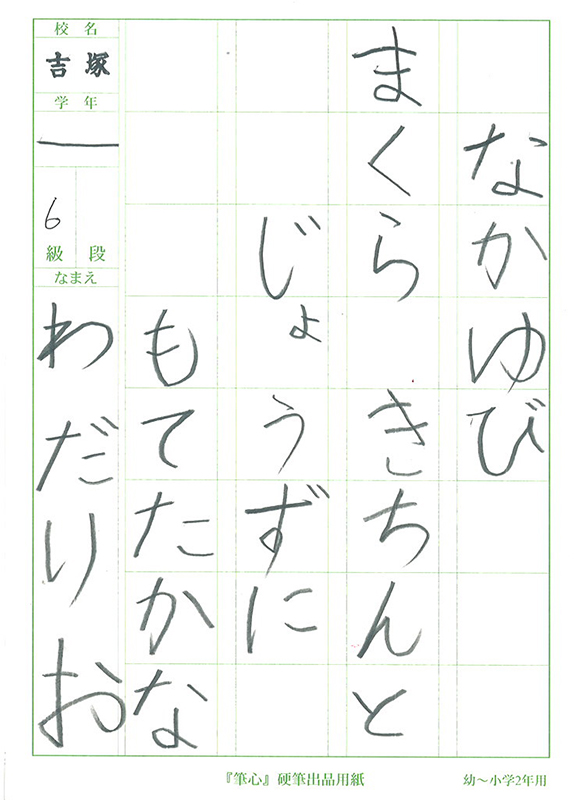 なかゆび
まくら きちんと
じょうずに
もてたかな
校名
吉塚
学年
一
6
級 段
なまえ
わだりお
『筆心』硬筆出品用紙
幼～小学2年用